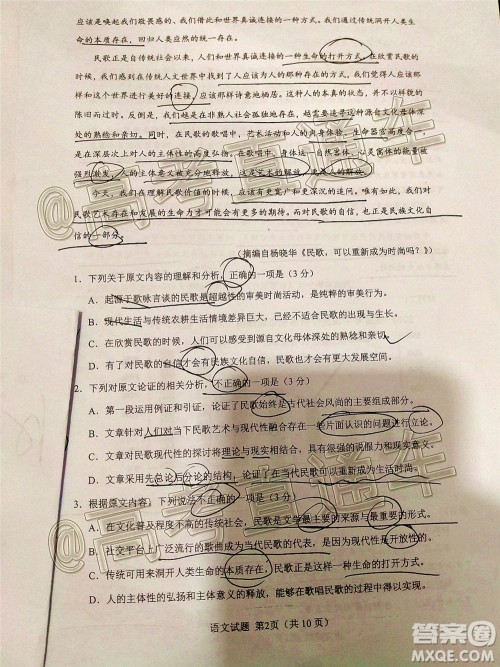 应该是唤起我们敬畏感的、我们借此和世界真诚连接的一种方式。我们通过传统洞开人类生
命的本质存在，回归人类应然的统一存在。
民歌正是自传统社会以来，人们和世界真诚连接的一种生命的打开方式。在欣赏民歌的
时候，我们感到在传统人文世界中是这样的美好存在的。我们觉得人应该那样和
世界进行美好的连接，应该那样诗意地栖居。
陈旧而过时。反过来，我们越是在非熟人社会孤独地存在，我们越是能感受到这种源自文化母体深处
的熟稔和亲切。同时，在民歌的歌唱中，艺术活动和人的肉身体验、生命器官高度合一，
是在深层次上对人的主体性的高度弘扬。在歌唱中，
强烈激发，人的主体意义被充分地释放，这是艺术的解放，更是人的解放。
今天，我们在理解民歌价值的时候，应该有更宽广和更深沉的追问。唯有如此，我们对
民歌艺术存在和发展的生命力才可能会有更多的期待。而对民歌的自信，也正是民族文化自
信的一部分。
（摘编自杨晓华《民歌，可以重新成为时尚吗？》）
1．下列关于原文内容的理解和分析，正确的一项是（3 分）
A．起源于歌咏言谈的民歌是超越性的审美时尚活动，是纯粹的审美行为。
B．现代生活与传统农耕生活情境差异巨大，已经不适合欣赏民歌。
C．在欣赏民歌的时候，人们可以感受到源自文化母体深处的熟稔和亲切。
D．有了对民歌的自信才会有民族文化自信，因此，民歌可以重新成为时尚。
2．下列对原文论证的相关分析，不正确的一项是（3 分）
A．第一段运用例证和引证，论证了民歌始终是古代社会风尚的主要组成部分。
B．文章针对人们对当下民歌艺术与现代性融合存在一些片面认识的问题进行立论。
C．文章对民歌艺术的现代性的探讨将理论与现实相结合，具有很强的说服力和现实意义。
D．文章采用先总论后分论的结构，论证了在当代民歌可以重新成为生活时尚。
3．根据原文内容，下列说法不正确的一项是（3 分）
A．在文化普及程度不高的古代，民歌是文学最主要的来源与最重要的形式。
B．社交平台上广泛流行的歌曲成为当代民歌的代表，是因为现代性是开放性的。
C．传统可用来洞开人类生命的本质存在，民歌正是这样一种生命的打开方式。
D．人的主体性的弘扬和主体意义的释放，能够在歌唱民歌的过程中得以实现。
语文试题 第2页（共 10 页）
@高考直通车
@高考直通车
答案圈
MXQE.COM